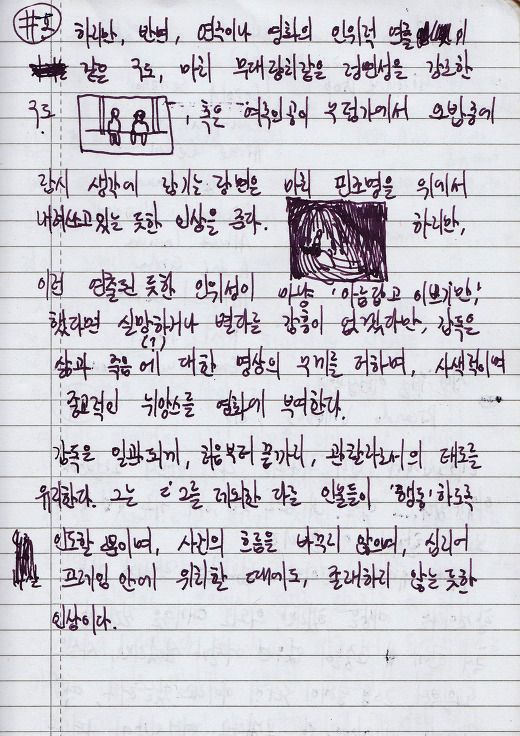 #5 하지만, 반면, 연극이나 영화의 인위적 연출
같은 구도, 마치 무대장치같은 정면성을 강조한
구도, 혹은 여주인공이 무덤가에서 오밤중에
잠시 생각에 잠기는 장면은 마치 핀조명을 위에서
내려쏘고있는 듯한 인상을 준다. 하지만,
이런 연출된 듯한 인위성이 마냥 '아름답고 이쁘기만'
했다면 실망하거나 별다를 감흥이 없겠다만, 감독은
삶과 죽음(1)에 대한 명상의 무게를 더하며, 사색적이며
종교적인 뉘앙스를 영화에 부여한다.
감독은 일관되게, 처음부터 끝까지, 관찰자로서의 태도를
유지한다. 그는 그를 제외한 다른 인물들이 '행동'하도록
인도할 뿐이며, 사건의 흐름을 바꾸지 않으며, 심지어
프레임 안에 위치할 때에도, 존재하지 않는 듯한
인상이다.